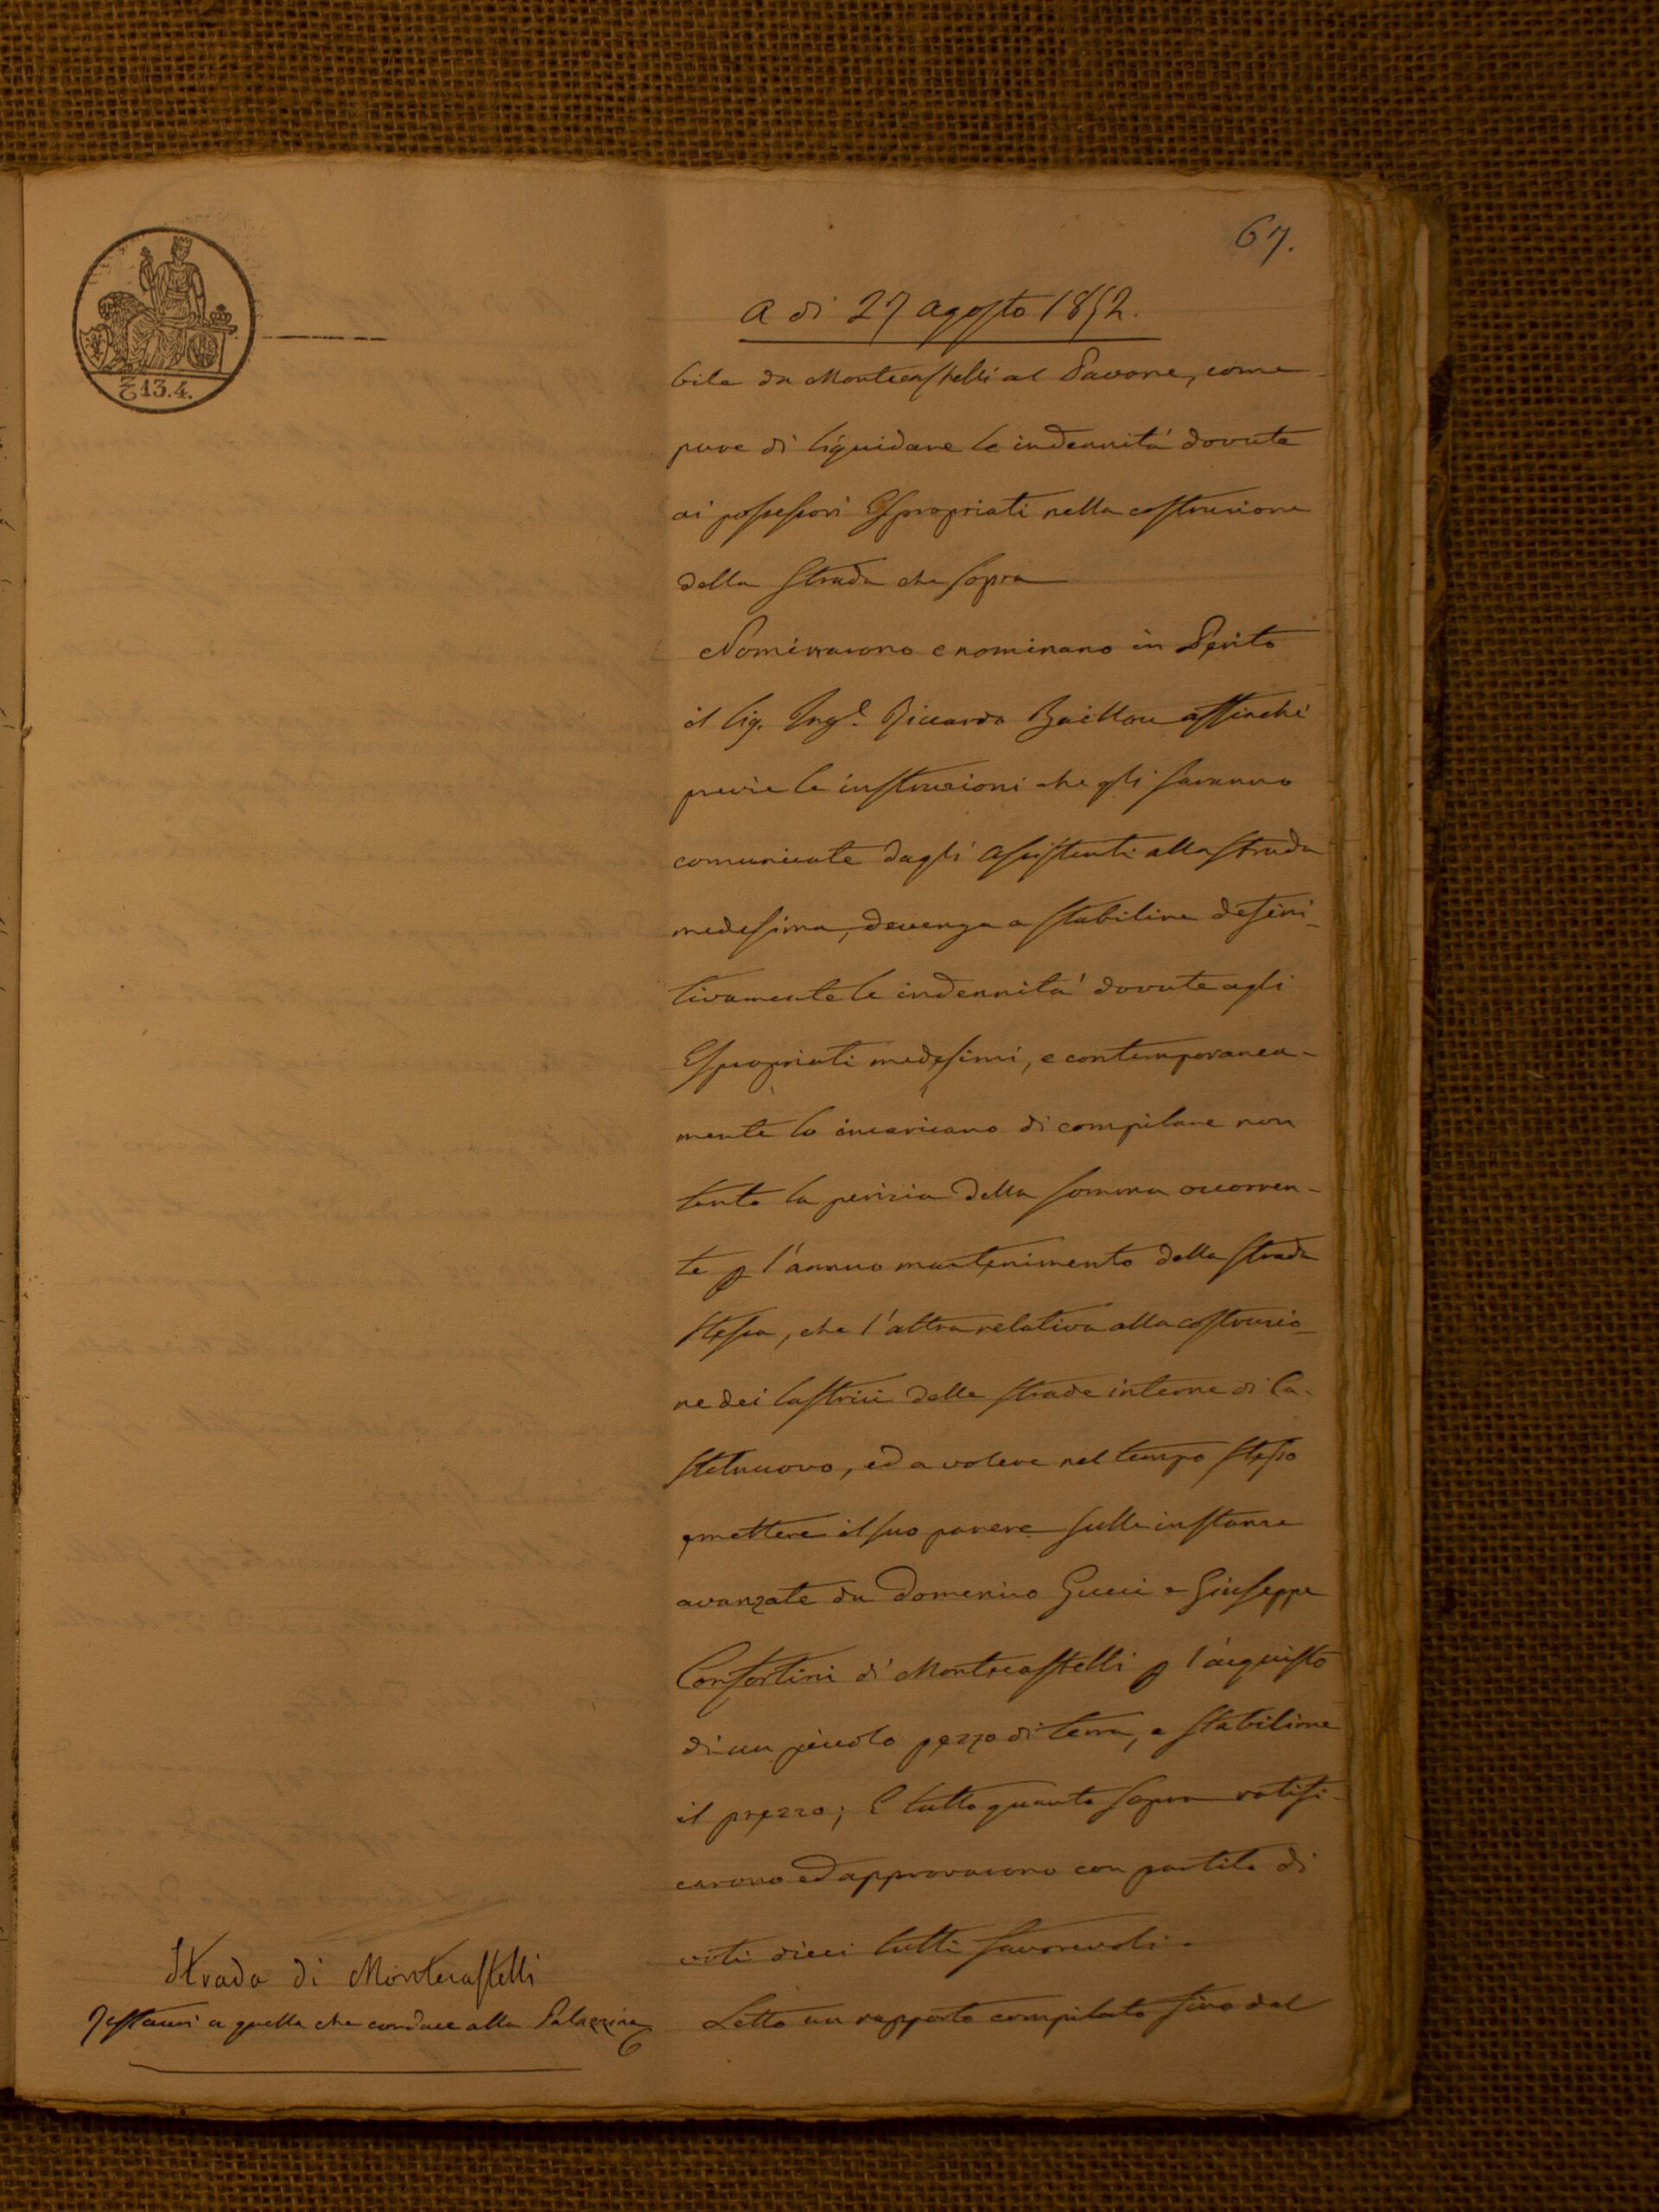 67.
13.4.
A dì 27 Agosto 1852.
bile da Montecastelli al Pavone, come
pure di liquidare le indennità dovute
ai possessori Espropriati nella costruzione
della Strada che sopra
Nominarono e nominano in Perito
il Sig. Ing.e Riccardo Baillou affinchè
previe le instruzioni che gli saranno
comunicate dagli Assistenti alla strada
medesima, devenga a stabilire defini-
tivamente le indennità dovute agli
Espropriati medesimi, e contemporanea-
mente lo incaricano di compilare non
tanto la perizia della somma occorren-
te p l'annuo mantenimento della strada
stessa, che l'altra relativa alla costruzio-
ne dei lastrici delle strade interne di Ca-
stelnuovo, ed a volere nel tempo stesso
emettere il suo parere sulle instanze
avanzate da Domenico Gucci e Giuseppe
Confortini di Montecastelli p l'acquisto
di un piccolo pezzo di terra, e stabilirne
il prezzo; E tutto quanto sopra ratifi-
carono ed approvarono con partito di
voti dieci tutti favorevoli.
Strada di Montecastelli
Restauri a quella che conduce alla Palazzina
Letto un rapporto compilato sino dal